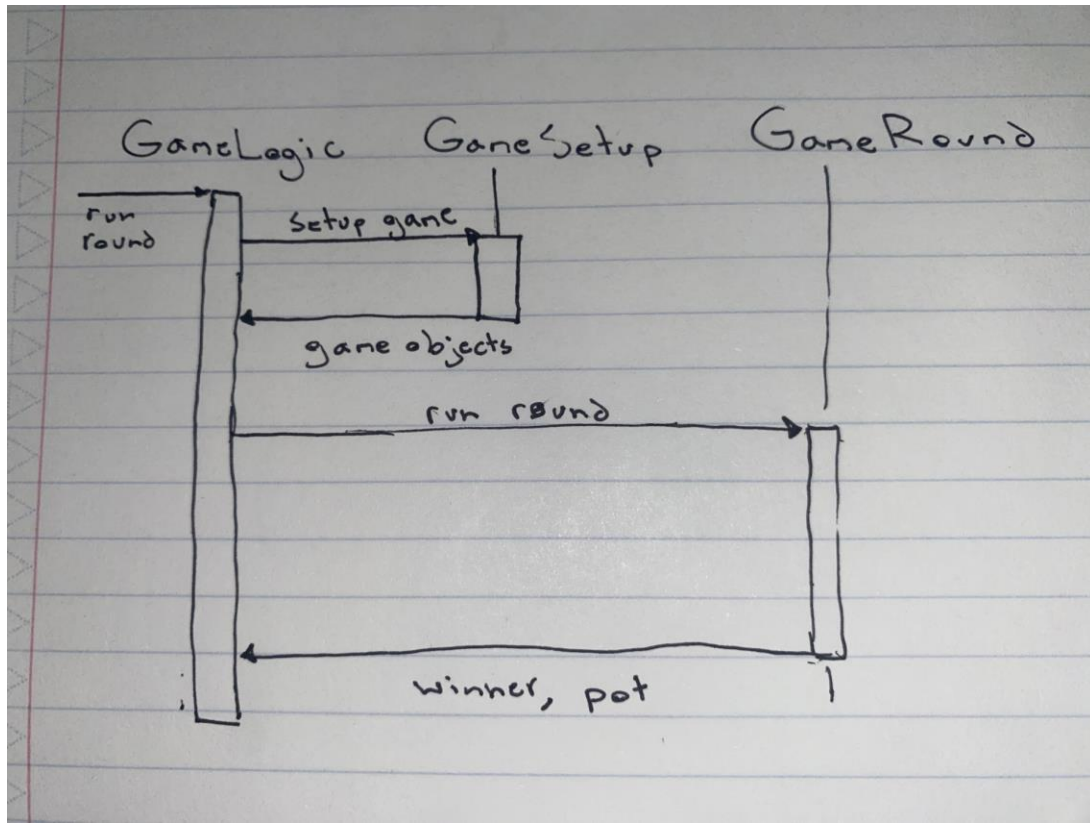 GameLogic GameSetup GameRound
run
round
setup game
game objects
run round
winner, pot